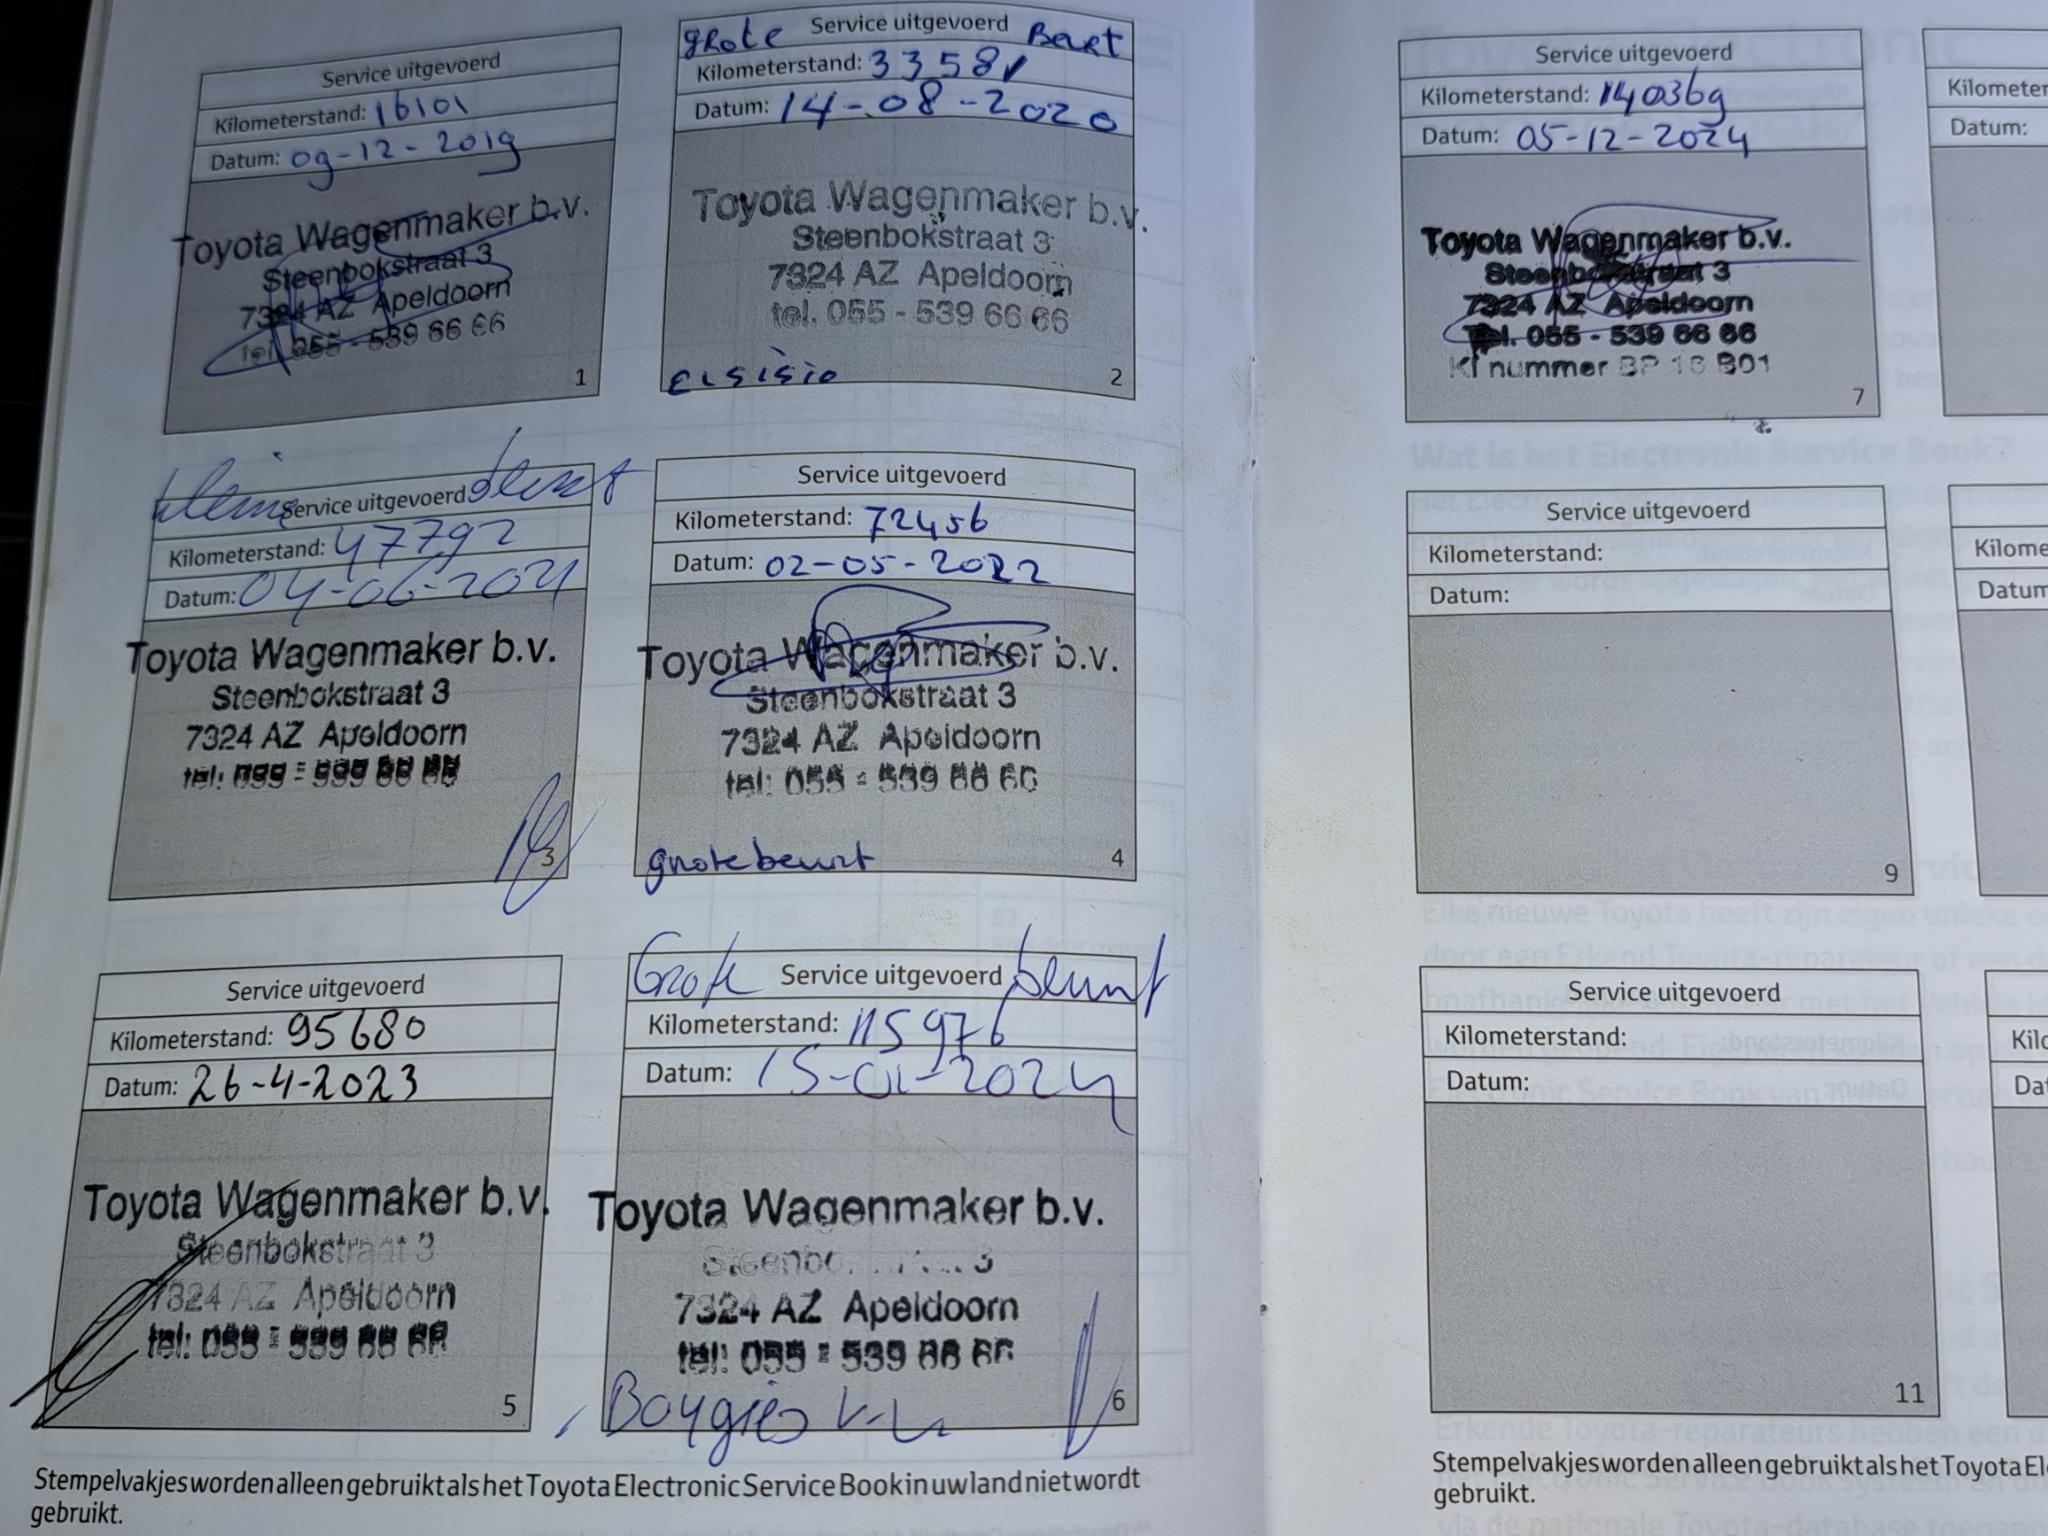 Service uitgevoerd
Kilometerstand: 16101
Datum: 09-12-2019
Toyota Wagenmaker b.v.
Steenbokstraat 3
7324 AZ Apeldoorn
tel. 055 - 539 66 66
1
grote Service uitgevoerd Beurt
Kilometerstand: 33581
Datum: 14-08-2020
Toyota Wagenmaker b.v.
Steenbokstraat 3
7324 AZ Apeldoorn
tel. 055 - 539 66 66
2
kleine Service uitgevoerd beurt
Kilometerstand: 47792
Datum: 04-06-2021
Toyota Wagenmaker b.v.
Steenbokstraat 3
7324 AZ Apeldoorn
3
Service uitgevoerd
Kilometerstand: 72456
Datum: 02-05-2022
Toyota Wagenmaker b.v.
Steenbokstraat 3
7324 AZ Apeldoorn
tel: 055 - 539 66 66
grote beurt
4
Service uitgevoerd
Kilometerstand: 95680
Datum: 26-4-2023
Toyota Wagenmaker b.v.
Steenbokstraat 3
7324 AZ Apeldoorn
5
Grote Service uitgevoerd beurt
Kilometerstand: 115976
Datum: 15-01-2024
Toyota Wagenmaker b.v.
7324 AZ Apeldoorn
tel: 055 - 539 66 66
6
Stempelvakjes worden alleen gebruikt als het Toyota Electronic Service Book in uw land niet wordt
gebruikt.
Service uitgevoerd
Kilometerstand: 140369
Datum: 05-12-2024
Toyota Wagenmaker b.v.
Steenbokstraat 3
7324 AZ Apeldoorn
Tel. 055 - 539 66 66
KI nummer BP 16 B01
7
Service uitgevoerd
Kilometerstand:
Datum:
9
Service uitgevoerd
Kilometerstand:
Datum:
11
Stempelvakjes worden alleen gebruikt als het Toyota El
gebruikt.
Kilometer
Datum:
Kilome
Datum
Kilo
Dat
Wat is het Electronic Service Book?